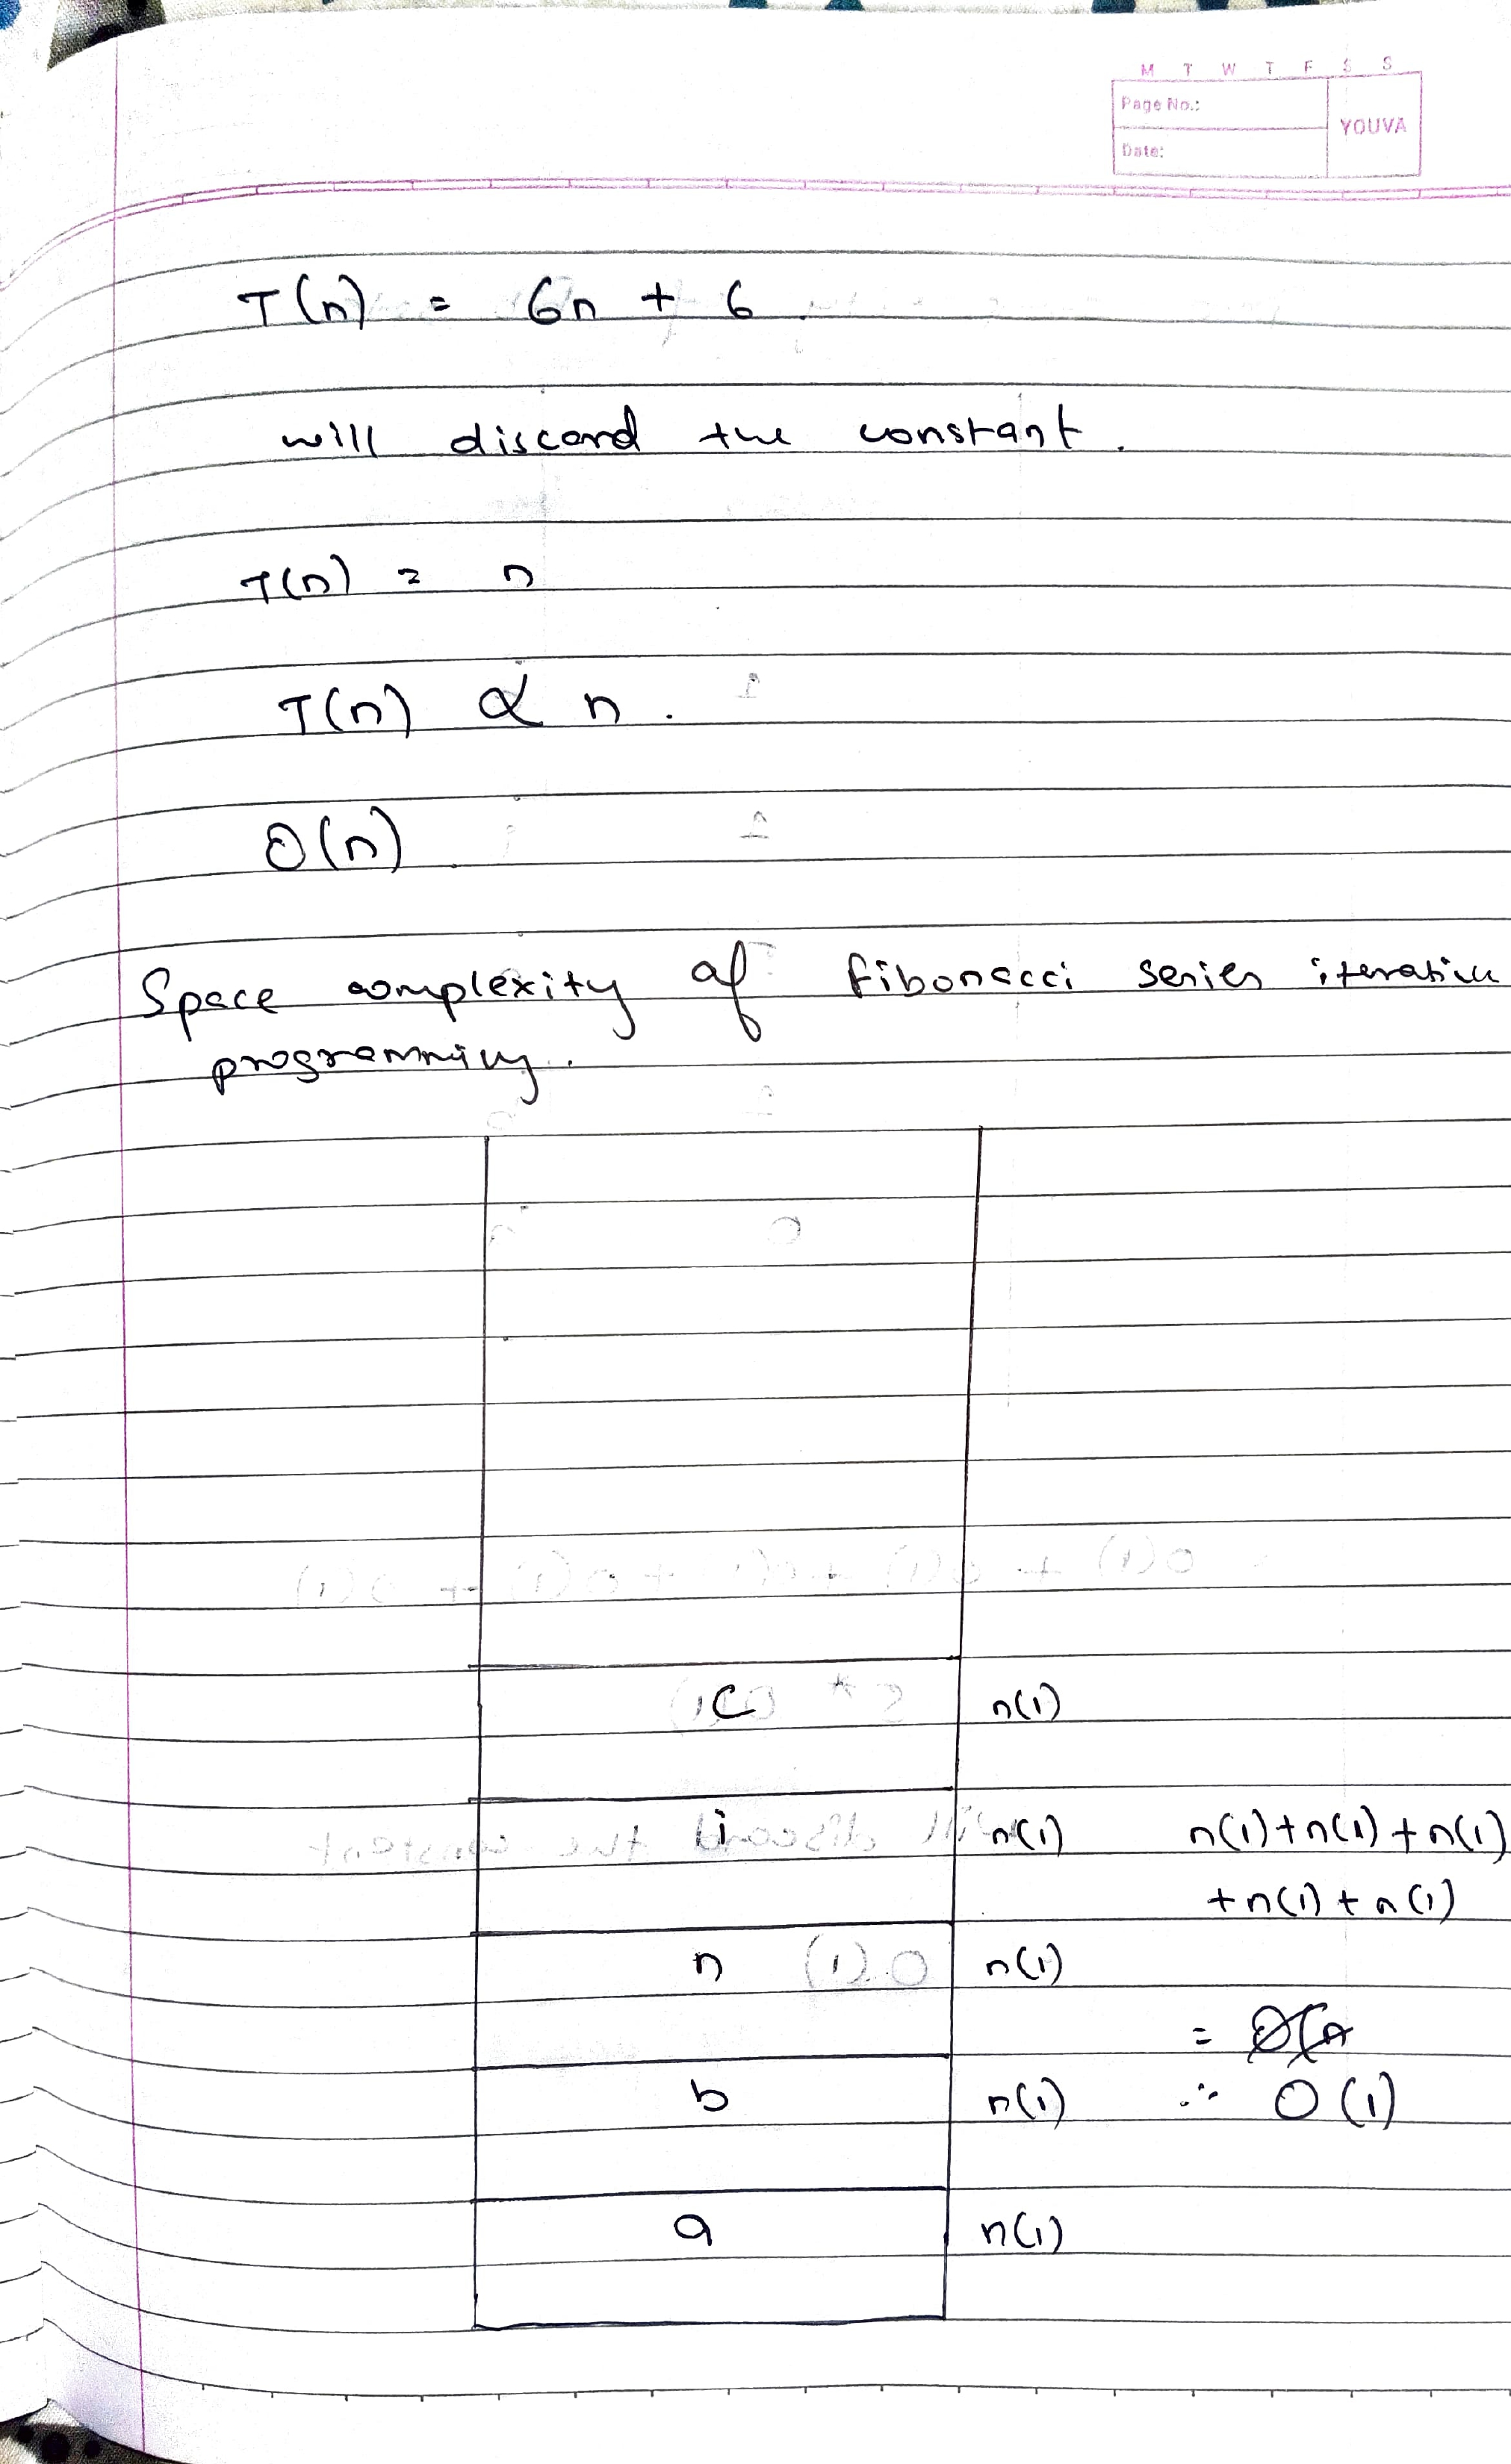 M T W T F S S
Page No.:
YOUVA
Date:
T(n) = 6n + 6.
will discard the constant.
T(n) = n
T(n) ∝ n.
O(n).
Space complexity of fibonacci series iterative
programming.
c n(1)
i n(1) n(1)+n(1)+n(1)
+n(1)+n(1)
n n(1)
=
b n(1) ∴ O(1)
a n(1)